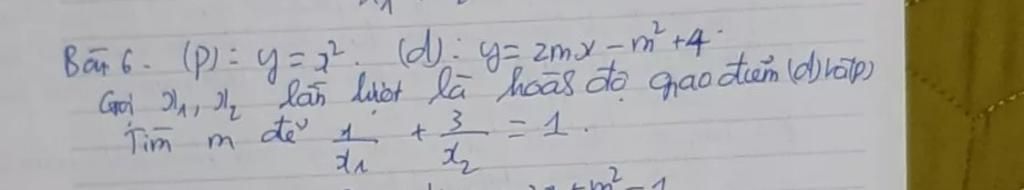 Bài 6. (P): y = x². (d): y = 2mx - m² + 4.
Gọi x₁, x₂ lần lượt là hoành độ giao điểm (d) và (P)
Tìm m để 1/x₁ + 3/x₂ = 1.